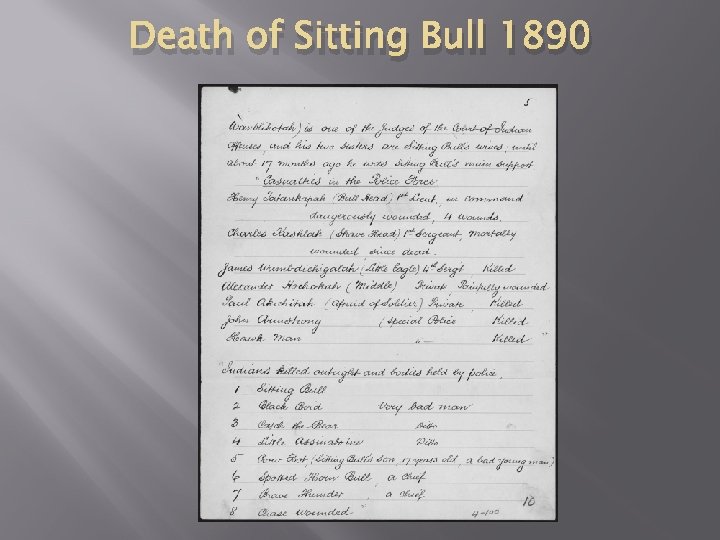 Death of Sitting Bull 1890
5
is one of the Judges of the Court of Indian
Offenses, and his two sisters are Sitting Bull's wives; until
about 17 months ago he was Sitting Bull's main support
"Casualties in the Police Force
Henry (Bull Head) 1st Lieut., in command
dangerously wounded, 4 wounds.
Charles (Shave Head) 1st Sergeant, mortally
wounded, since dead.
James (Little Eagle) 4th Sergt Killed
Alexander (Middle) Private Painfully wounded
Paul (Afraid of Soldier) Private, Killed
John Armstrong (Special Police Killed
Hawk Man " Killed "
"Indians killed outright and bodies held by police,
1 Sitting Bull
2 Black Bird Very bad man
3 Catch the Bear Ditto
4 Little Assinaboine Ditto
5 Crow Foot (Sitting Bull's son, 17 years old, a bad young man)
6 Spotted Horn Bull, a chief
7 Brave Thunder, a chief
8 Chase wounded
10
4-100